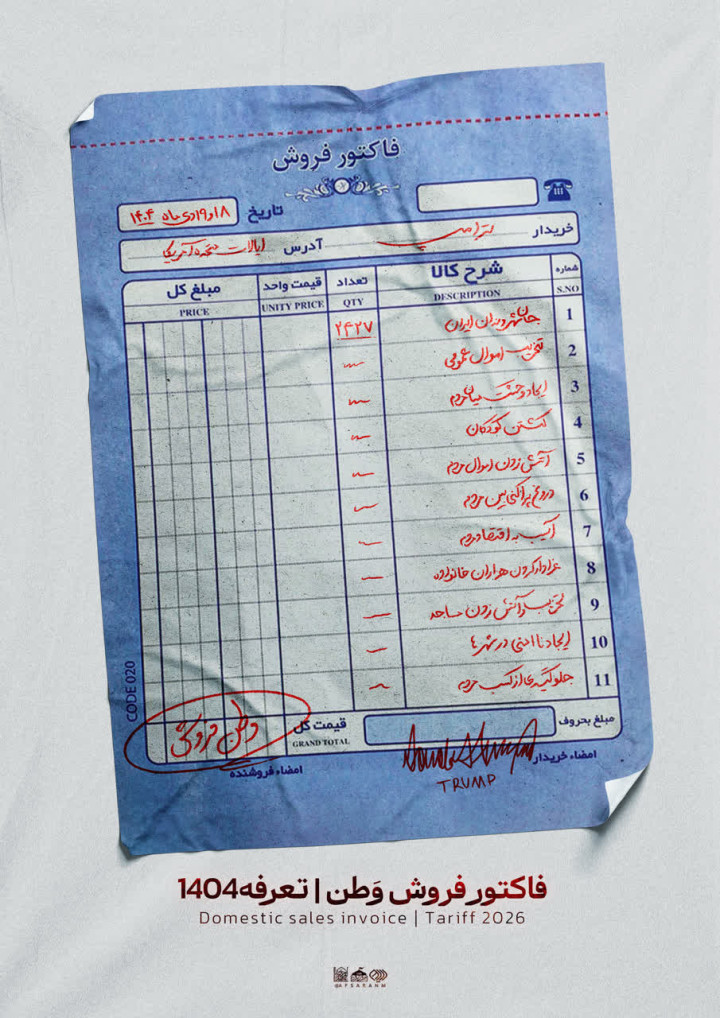 فاکتور فروش
تاریخ ۱۸و۱۹دی ماه ۱۴۰۴
خریدار ترامپ آدرس ایالات متحده آمریکا
شماره شرح کالا تعداد قیمت واحد مبلغ کل
S.NO DESCRIPTION QTY UNITY PRICE PRICE
1 جان شهروندان ایران ۲۴۲۷
2 تخریب اموال عمومی
3 ایجاد وحشت میان مردم
4 کشتن کودکان
5 آتش زدن اموال مردم
6 دروغ پراکنی بین مردم
7 آسیب به اقتصاد مردم
8 عزادار کردن هزاران خانواده
9 تخریب و آتش زدن مساجد
10 ایجاد ناامنی در شهرها
11 جلوگیری از کسب مردم
CODE 020
مبلغ بحروف قیمت کل وطن فروشی
GRAND TOTAL
امضاء خریدار امضاء فروشنده
TRUMP
فاکتور فروش وَطن | تعرفه1404
Domestic sales invoice | Tariff 2026
@AFSARANM